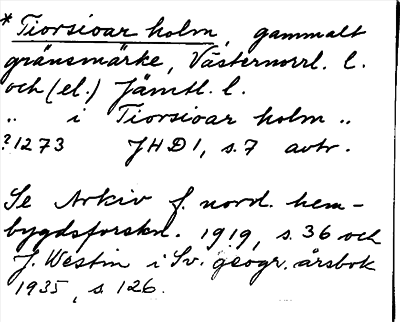 * Tiorsioar holm, gammalt
gränsmärke, Västernorrl. l.
och (el.) Jämtl. l.
„ i Tiorsioar holm „
?1273 JHD1, s.7 avtr.
Se Arkiv f. nord. hem-
bygdsforskn. 1919, s. 36 och
J. Westin i Sv. geogr. årsbok
1935, s 126.